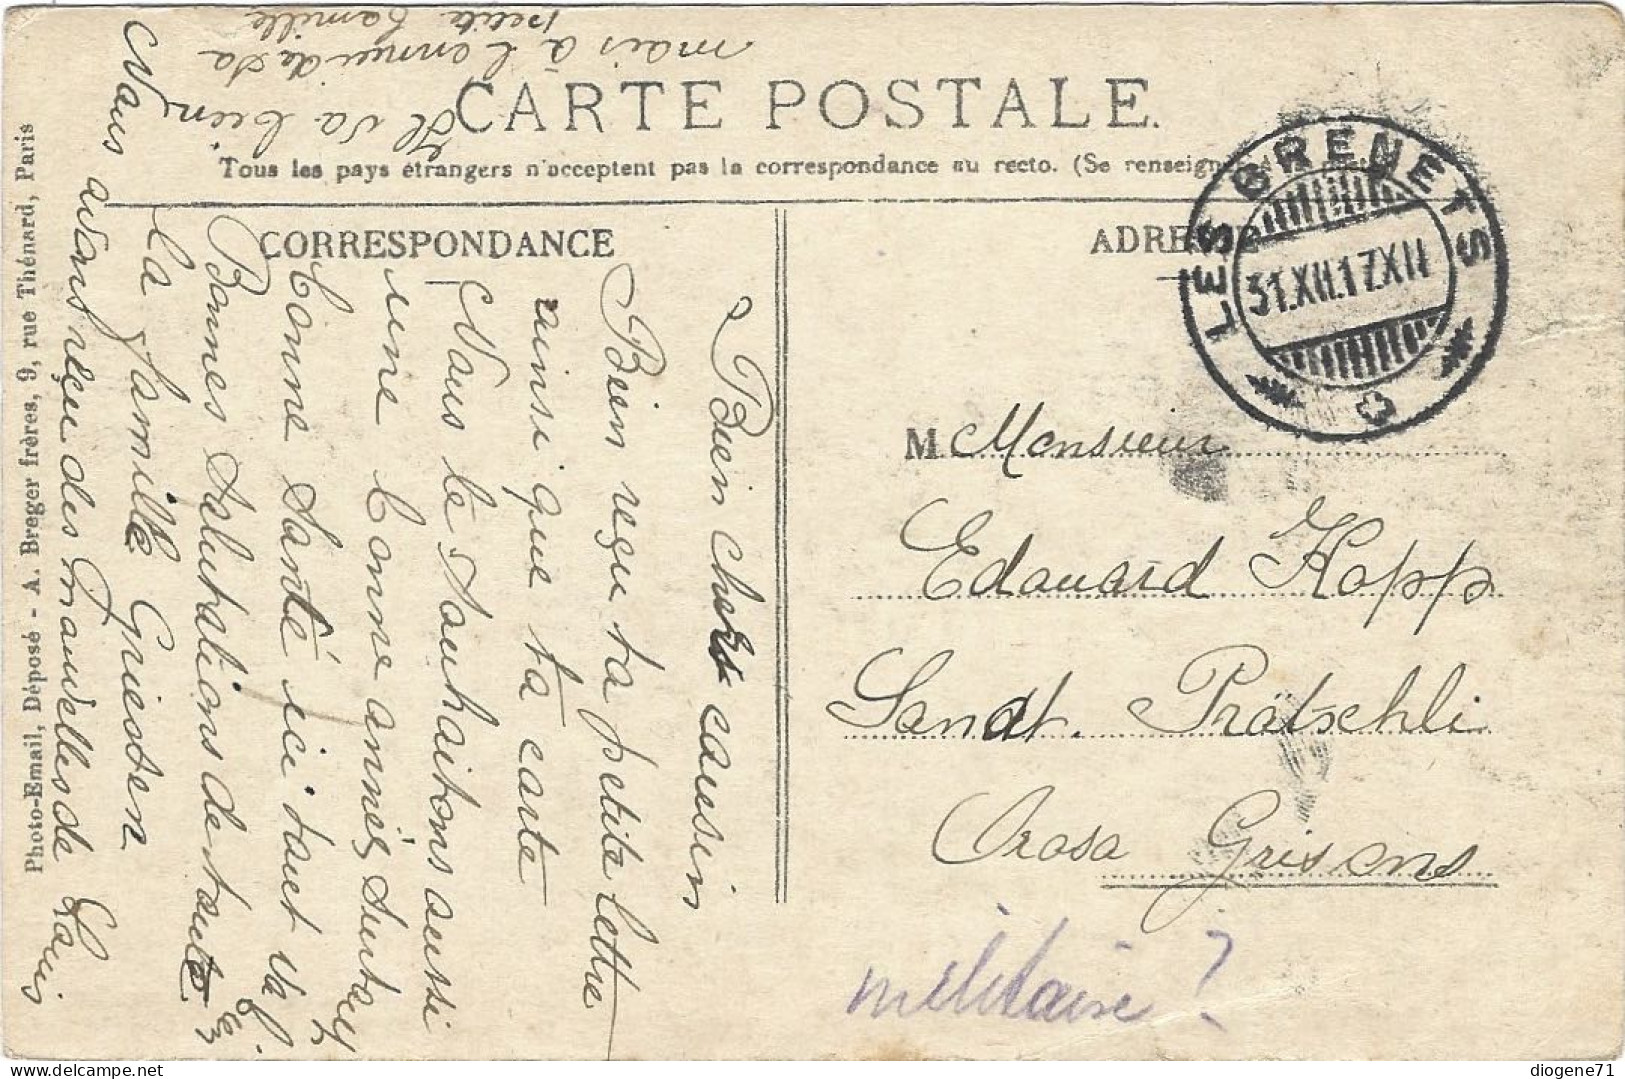 CARTE POSTALE
Tous les pays étrangers n'acceptent pas la correspondance au recto. (Se renseigner
CORRESPONDANCE
ADRESSE
LES BRENETS
31.XII.17.XII
M. Monsieur
Edouard Kopp
Sandt. Prätschli
Arosa Grisons
militaire ?
Bien chert cousin
Bien reçu ta petite lette
ainsi que ta carte
Nous te souhaitons aussi
une bonne année surtout
bonne santé ici tout va
Bonnes Salutations de toute
la famille Griesten
Nous avons reçu des nouvelles de Louis
Il va bien
mais à l'ennui de sa
petite famille
Photo-Email, Déposé - A. Breger frères, 9, rue Thénard, Paris
diogene71